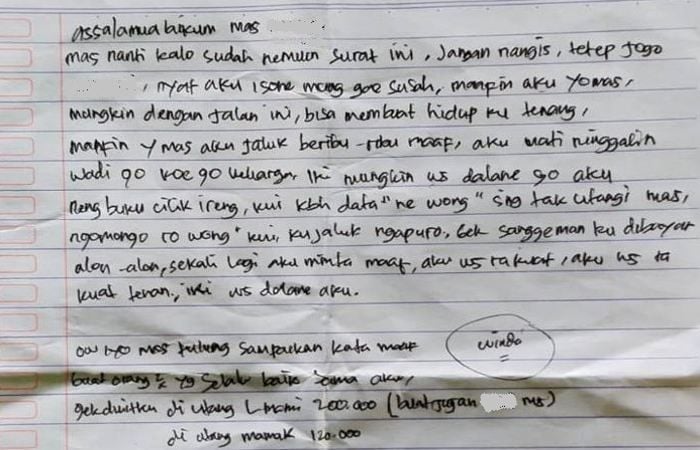 assalamuallaikum mas
mas nanti kalo sudah nemuin surat ini, Jangan nangis, tetep jogo
, nyat aku isone mung goe susah, maapin aku yo mas,
mungkin dengan jalan ini, bisa membuat hidup ku tenang,
maapin y mas aku jaluk beribu-ribu maaf, aku mati ninggalin
wadi go koe go keluarga. Iki mungkin us dalane go aku
neng buku cilik ireng, kui kbh data" ne wong" sng tak utangi mas,
ngomongo ro wong" kui, ku jaluk ngapuro, Gek sanggeman ku dibayar
alon-alon, sekali lagi aku minta maaf, aku us ra kuat, aku us ra
kuat tenan, iki us dalane aku.
mas tulung sampaikan kata maaf
winda
buat orang2 yg selalu baik sama aku,
gek duitku di utang 200.000 (
di utang mamak 120.000